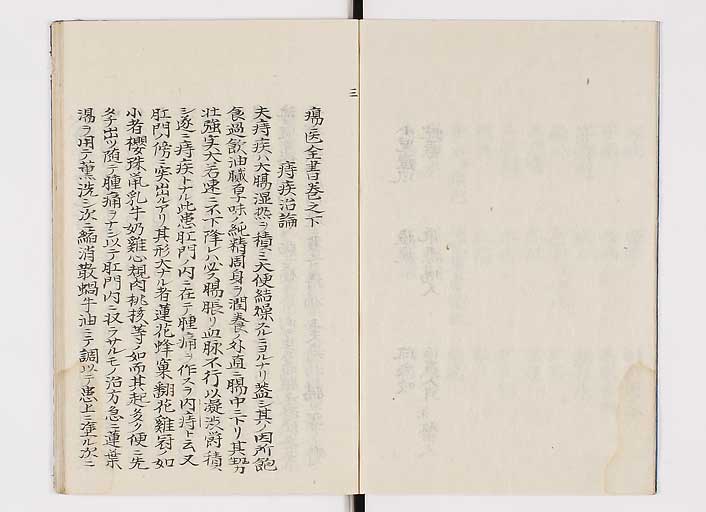 瘍医全書巻之下
痔疾治論
夫痔疾ハ大腸湿熱ヲ積ミ大便結燥スルニヨルナリ蓋シ其ノ因所飽
食過飲油膩厚味ノ純精周身ヲ潤養ノ外直ニ腸中ニ下リ其勢
壮強実大若速ニ不下降レハ必ス腸脹リ血脉不行以凝渋欝積
シ遂ニ痔疾トナル此患肛門ノ内ニ在テ腫痛ヲ作スヲ内痔ト云又
肛門ノ傍ニ突出ルアリ其形大ナル者蓮花蜂窠翻花雞冠ノ如
小者櫻珠鼠乳牛奶雞心覩肉桃核等ノ如而其起多ク便ニ先
タチ出ツ随テ腫痛ヲナシ以テ肛門内ニ収ラサルモノ治方急ニ蓮葉
湯ヲ用テ薫洗シ次ニ縮消散蝸牛油ニテ調以テ患上ニ塗ル次ニ
三